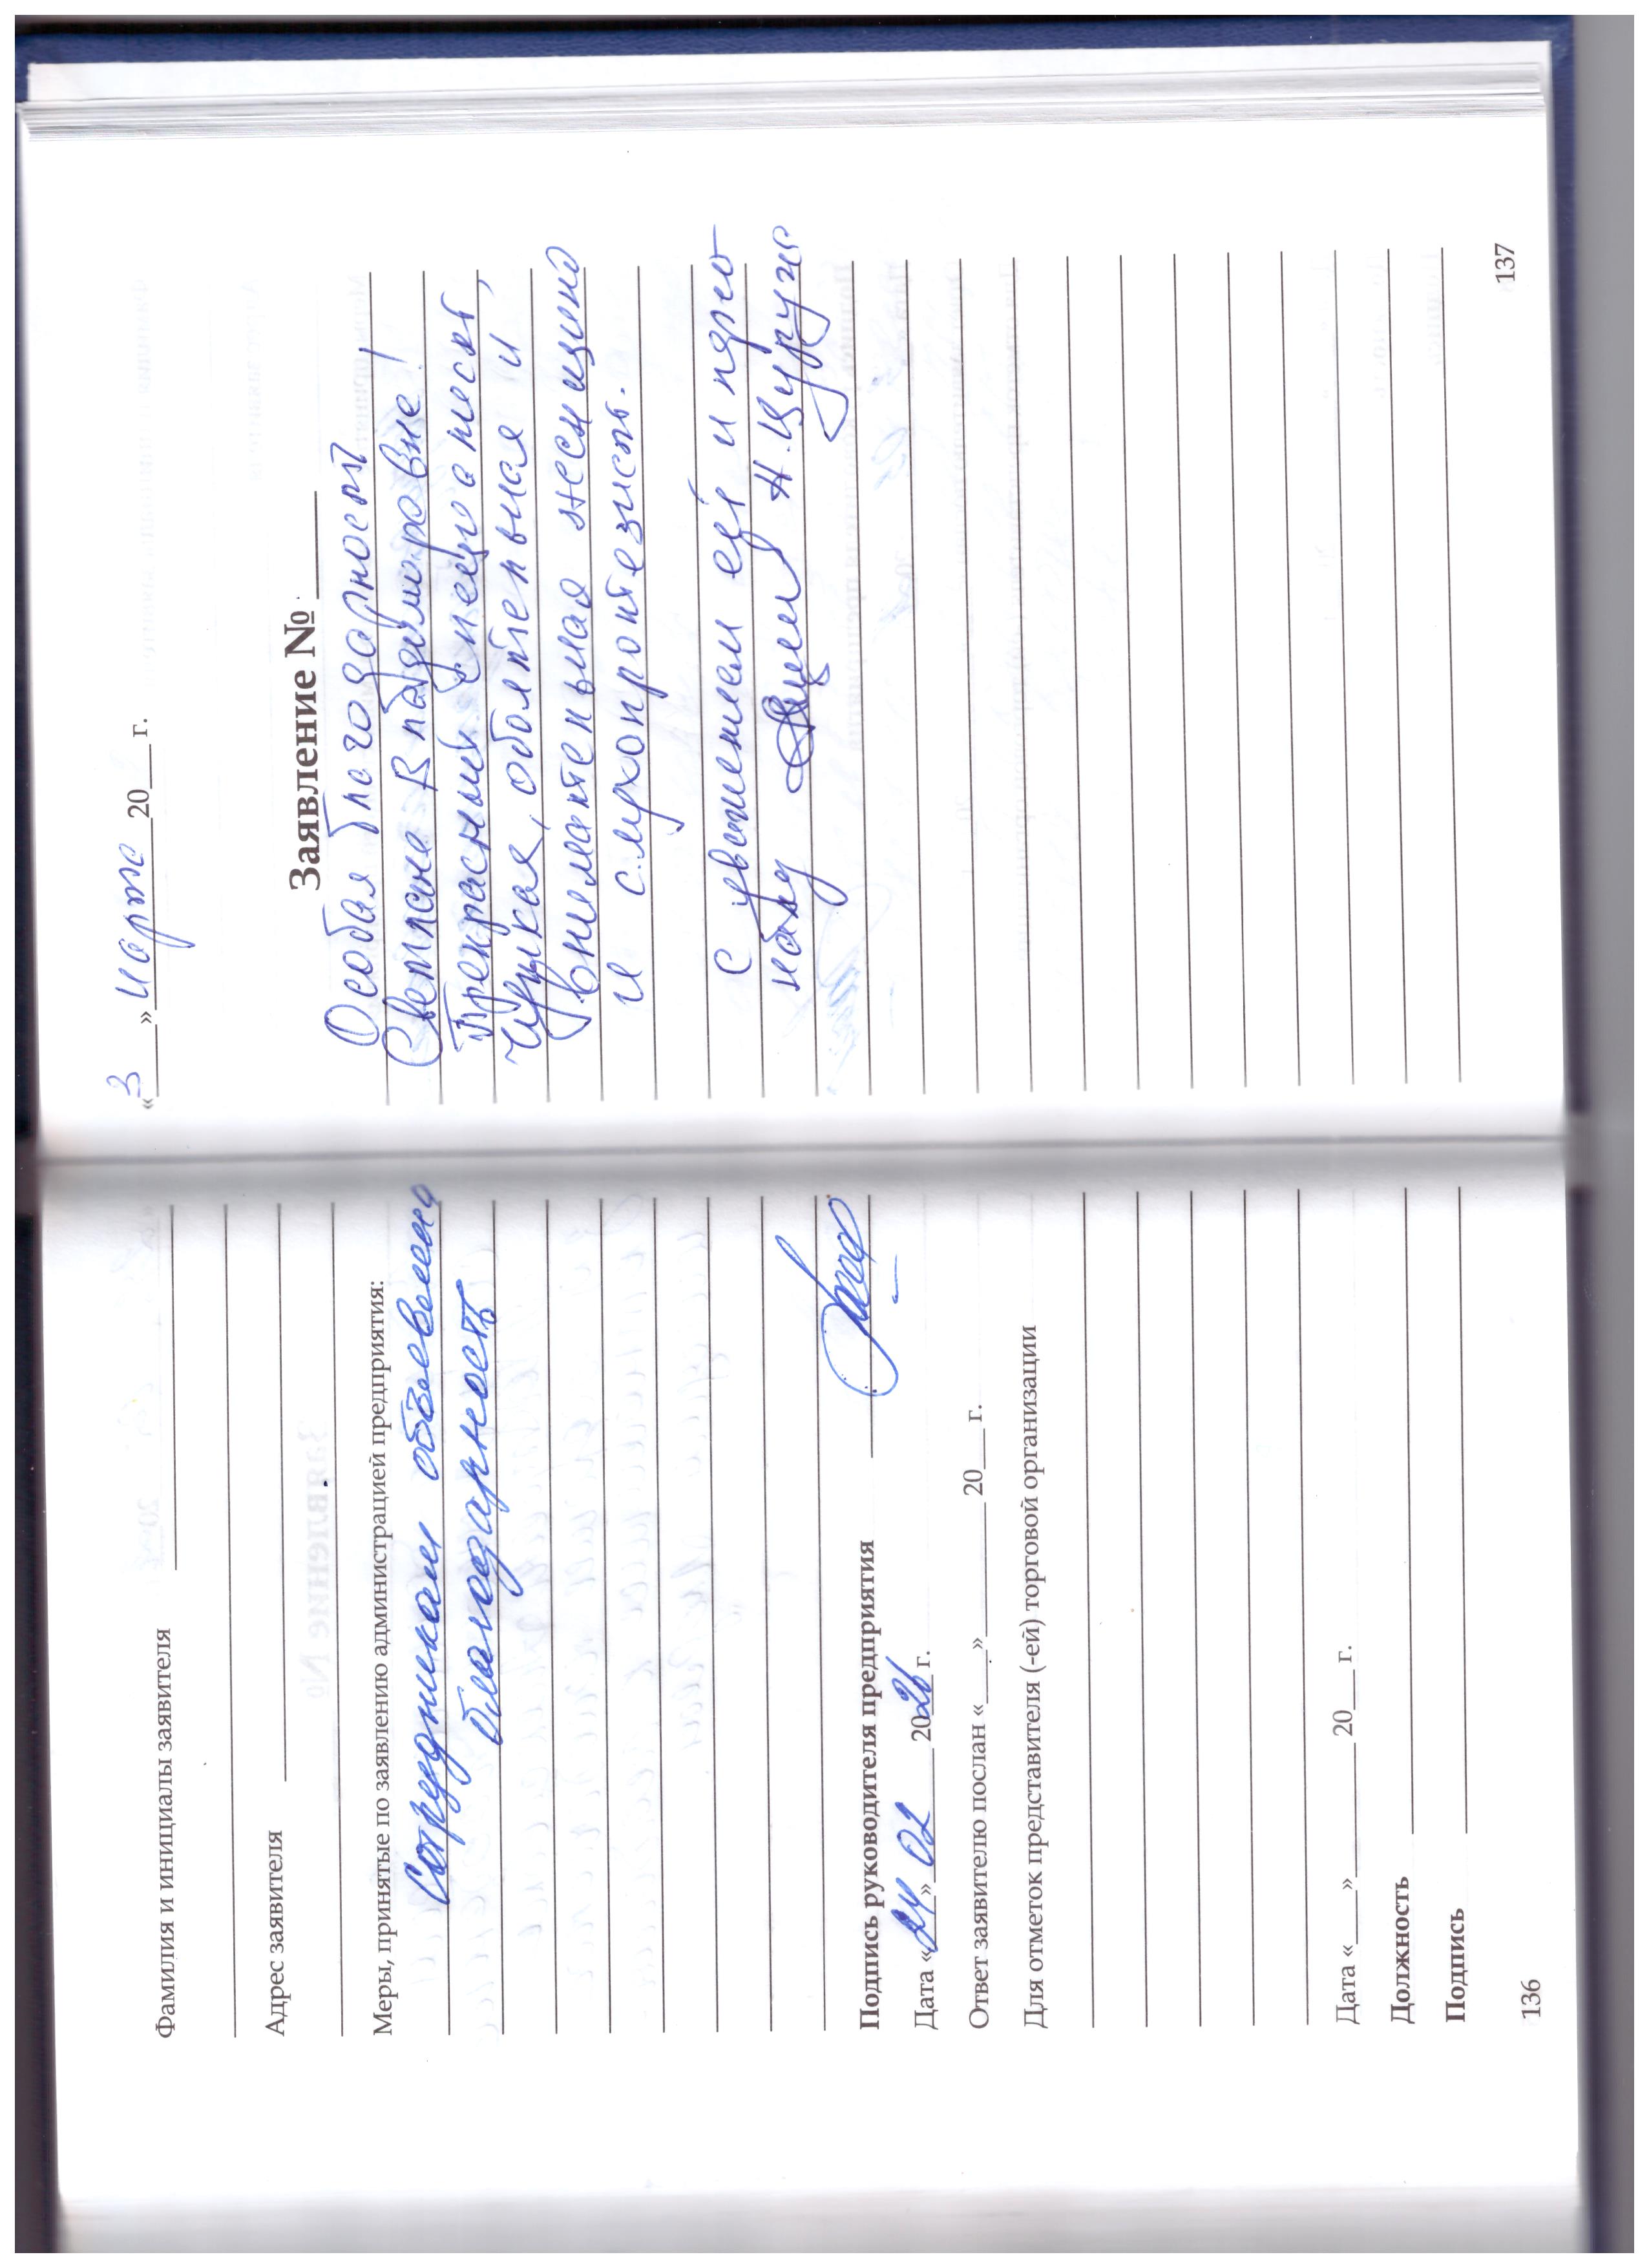 Фамилия и инициалы заявителя
Адрес заявителя
Меры, принятые по заявлению администрацией предприятия:
Сотрудникам объявлена
благодарность
Подпись руководителя предприятия
Дата «24» 02 2026 г.
Ответ заявителю послан «___»________ 20___ г.
Для отметок представителя (-ей) торговой организации
Дата «____»________ 20___ г.
Должность
Подпись
136
«3» марта 20___ г.
Заявление № ____
Особая благодарность
Светлане Владимировне!
Прекрасный специалист,
чуткая, обаятельная и
внимательная женщина
и слухопротезист.
С уважением к ней и
Н. Цуруже
137